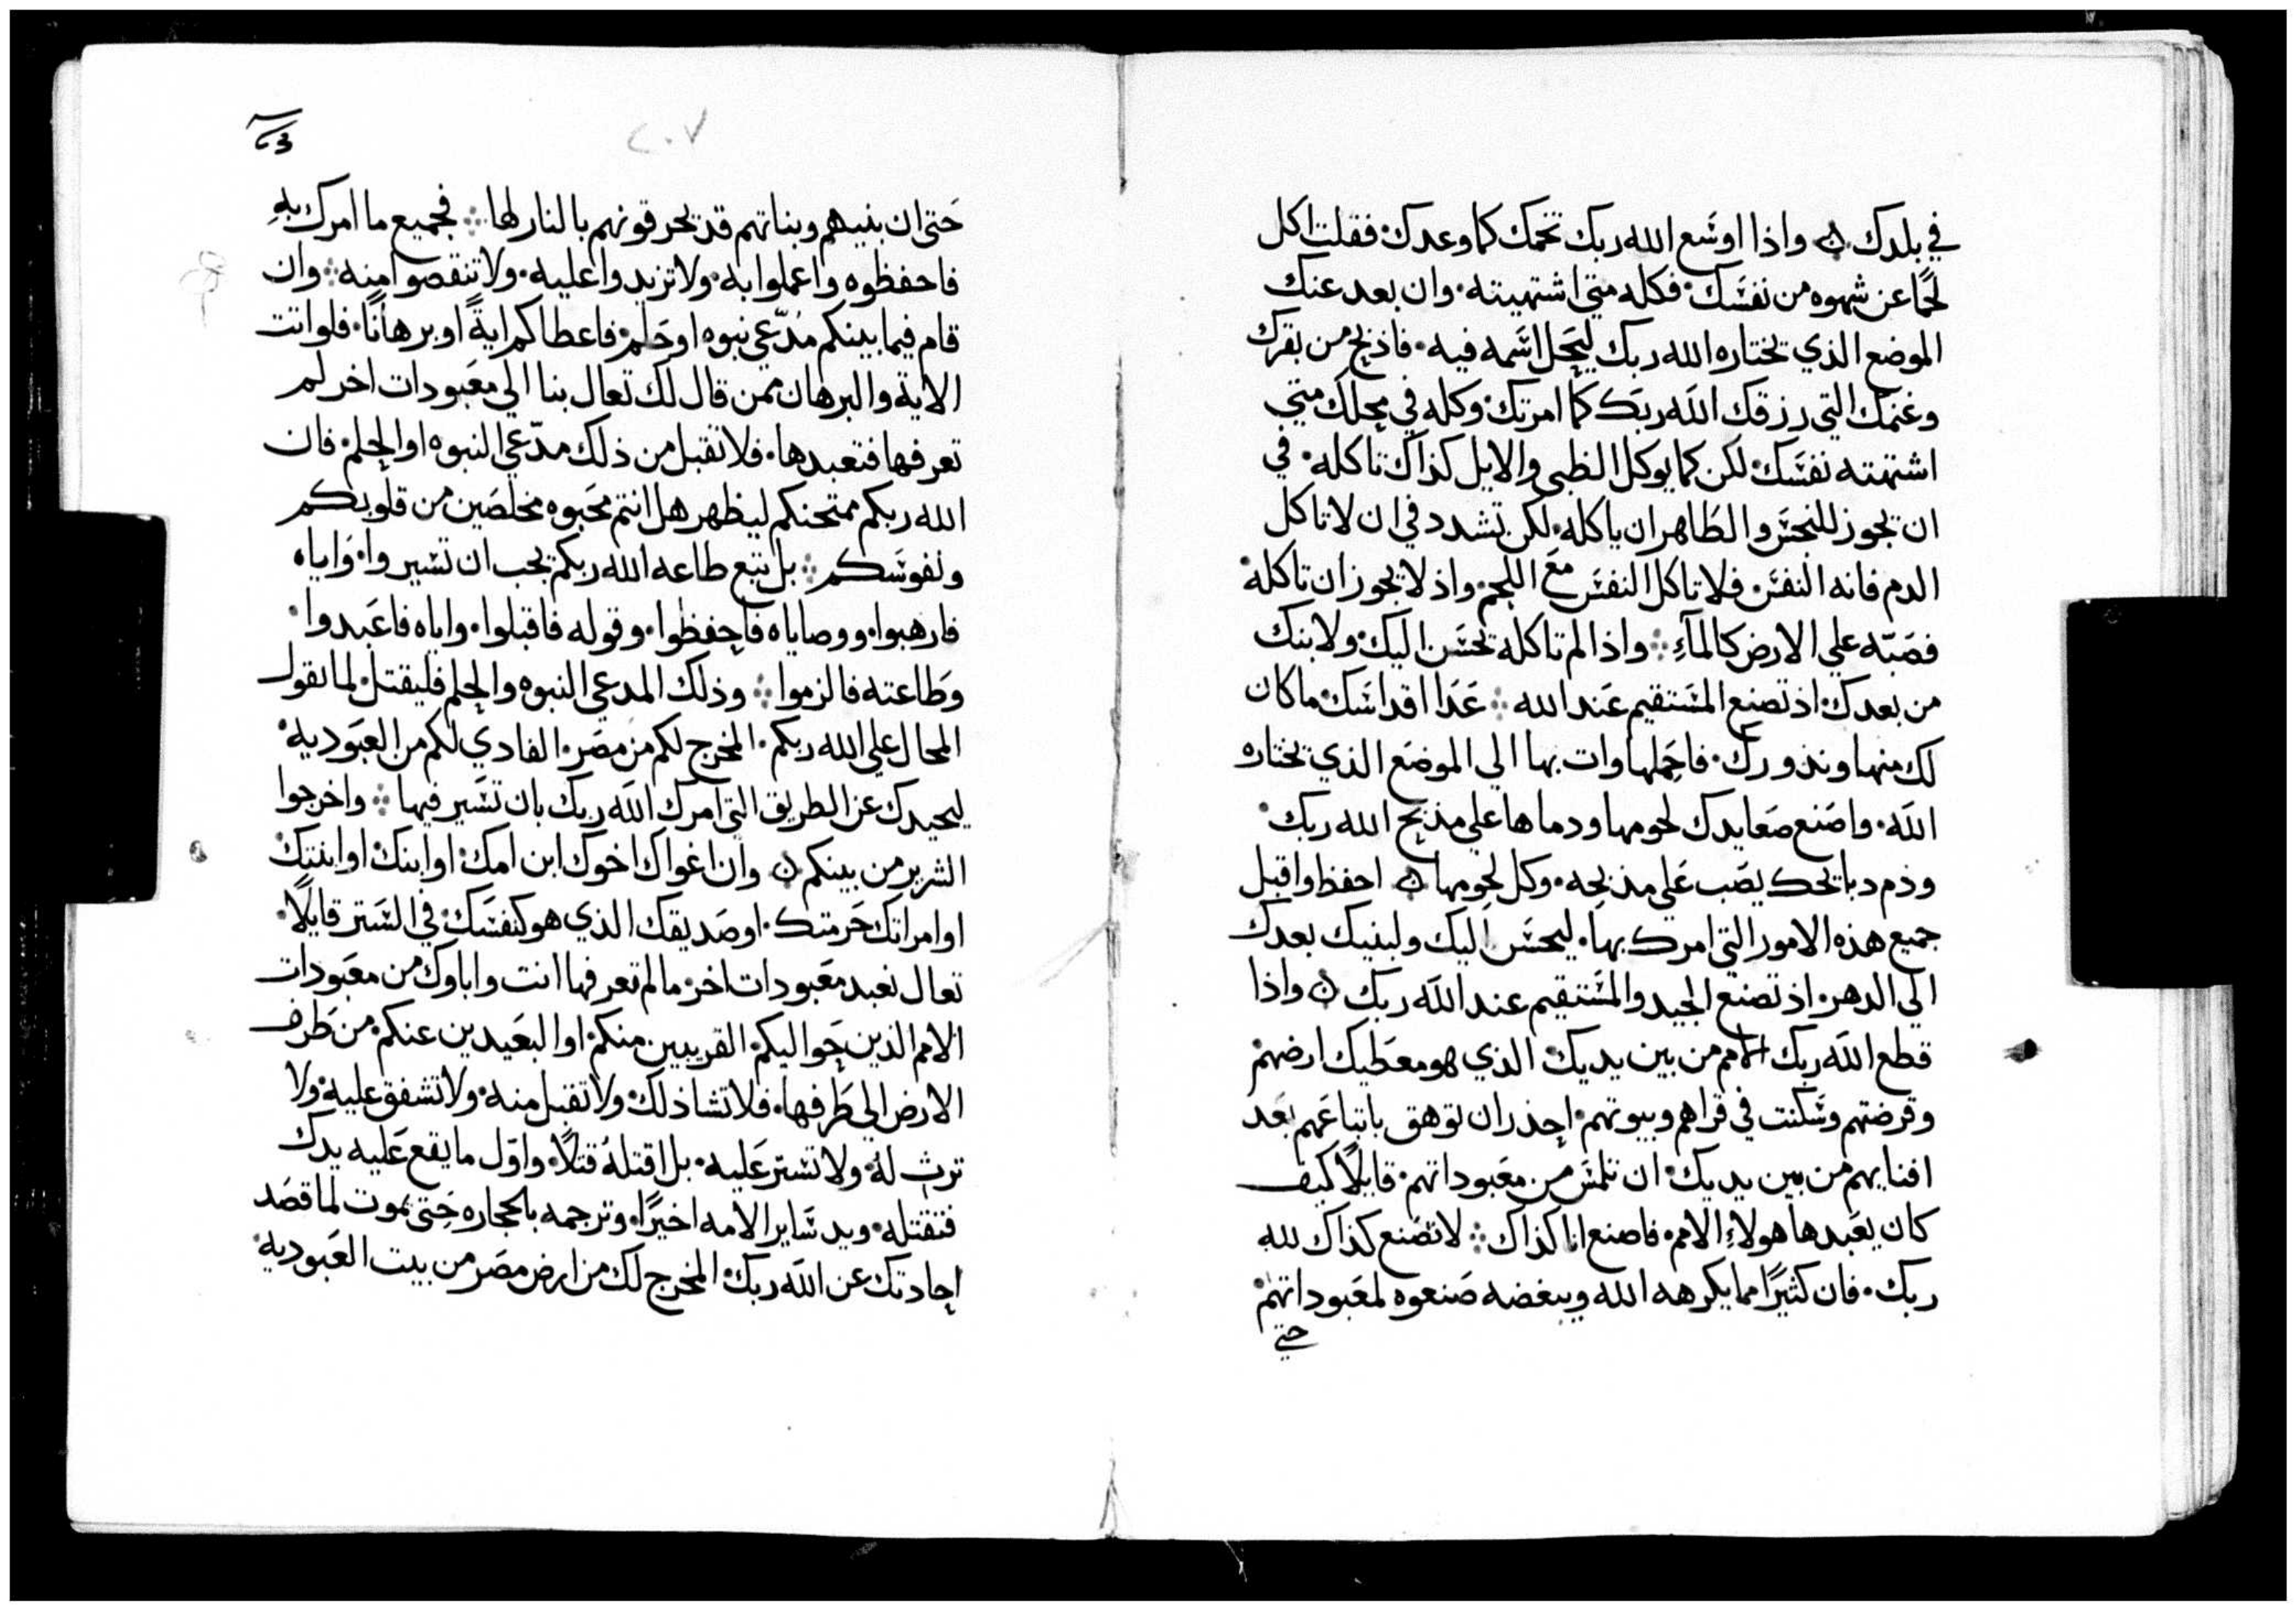 في بلدك ۞ واذا اوسَع الله ربك تخمك كما وعدك• فقلت اكل
لحمًا عن شهوه من نفسَك• فكله متي اشتهيته• وان بعد عنك
الموضع الذي يختاره الله ربك ليحَل اسَمه فيه• فاذبح من بقرك
وغنمك التي رزقك الله ربَك كما امرتك• وكله في محلك متي
اشتهته نفسَك• لكن كما يوكل الظبي والايل كذاك تاكله• في
ان يجوز للنجسَ والطَاهر ان ياكله• لكن تشدد في ان لا تاكل
الدم فانه النفسَ• فلا تاكل النفسَ مَع اللحم• واذ لا يجوز ان تاكله•
فصَبّه علي الارض كالمآءِ ∴ واذا لم تاكله يحسَن اليك• ولابنك
من بعدك• اذ تصنع المسَتقيم عَند الله ∴ عَدَا اقداسَك• ما كان
لك منها ونذورك• فاحَملها وات بها الي الموضَع الذي يختاره
الله• واصَنع صَعايدك لحومها ودماها علي مذبَح الله ربك•
ودم دبايحك يصَب عَلي مذبحِه• وكل لحومها ۞ احفظ واقبل
جميع هذه الامور التي امرك بها• ليحسَن اليك ولبنيك بعدك
الي الدهر• اذ تصنع الجيد والمسَتقيم عند الله ربك ۞ واذا
قطع الله ربك الامم من بين يديك• الذي هو معطَيك ارضهم•
وقرضتهم وسَكنت في قراهم وبيوتهم• احِذر ان توهق باتباعَهم بَعد
افنايهم من بين يديك• ان تلمسَ من معَبوداتهم• قايلًا كيف
كان يعَبدها هولاءِ الامم• فاصنع انا كذاك ∴ لا تصَنع كذاك لله
ربك• فان كثيرًا مما يكرهه الله ويبغضه صَنعوه لمعَبوداتهم•
حتي
٢٠٧
حَتي ان بنيهم وبناتهم قد يحرقونهم بالنار لها ∴ فجميع ما امرك بهِ
فاحفظوه واعملوا به• ولا تزيدوا عليه• ولا تنقصوا منه ∴ وان
قام فيما بينكم مُدّعي نبوه• او حَلم• فاعطاكم ايةً او برهانًا• فلو اتت
الاية والبرهان ممن قال لك تعال بنا الي معَبودات اخر لم
تعرفها فتعبدها• فلا تقبل من ذلك مدّعي النبوه او الحِلم• فان
الله ربكم ممتحنكم ليظهر هل انتم محَبوه مخلصَين من قلوبكم
ونفوسَكم ∴ بل تبع طاعه الله ربكم يجب ان تسَيروا• وَاياه
فارهبوا• ووصاياه فاحِفظوا• وقوله فاقبلوا• واياه فاعَبدوا•
وطَاعته فالزموا ∴ وذلك المدعي النبوه والحِلم فليقتل• لما تقول
المحال علي الله ربكم• المخرج لكم من مصَر• الفادي لكم من العبَوديه•
ليحيدك عن الطريق التي امرك الله ربك بان تسَير فيها ∴ واخرجوا
الشرير من بينكم ۞ وان اغواك اخوك ابن امك• او ابنك• او ابنتك
او امراتك حَرمتك• او صَديقك الذي هو كنفسَك• في السَتر قايلًا•
تعال نعبد معَبودات اخر• ما لم تعرفها انت واباوك من معَبودات
الامم الذين حَواليكم• القريبين منكم• او البعَيدين عنكم• من طَرف
الارض الي طَرفها• فلا تشا ذلك• ولا تقبل منه• ولا تشفق عليه• ولا
ترث له• ولا تسَتر عَليه• بل اقتلهُ قتلًا• واوّل ما يقع عَليه يدك
فتقتله• ويد سَاير الامه اخيرًا• وترجمه بالحجاره حَتي يموت• لما قصَد
احِادتك عن الله ربك• المخرج لك من ارض مصَر من بيت العَبوديه•